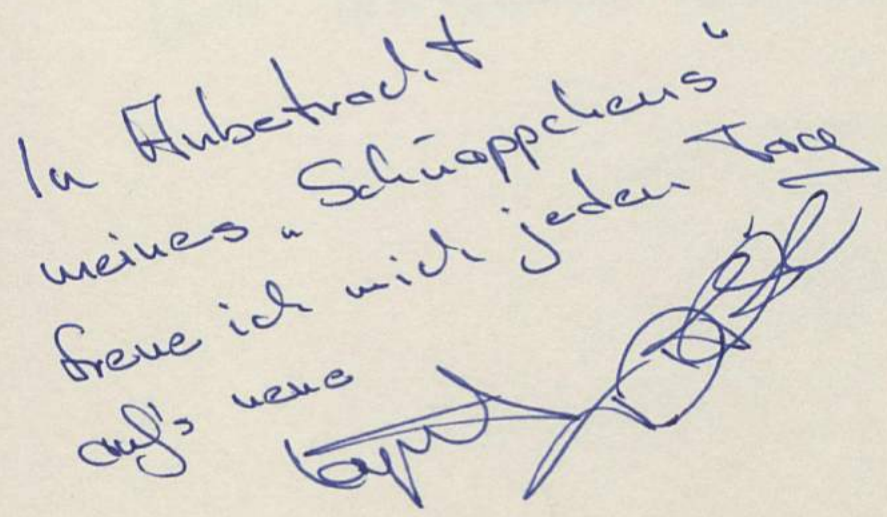 In Anbetracht
meines „Schnäppchens“
freue ich mich jeden Tag
auf's neue